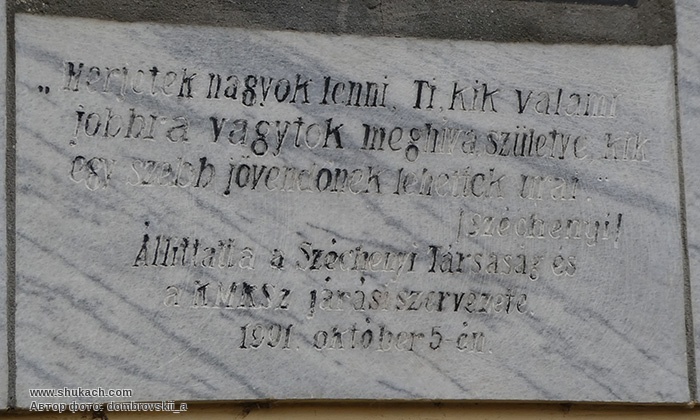 „Merjetek nagyok lenni, Ti, kik valami
jobbra vagytok meghiva, születve, kik
egy szebb jövendőnek lehettek urai."
/széchenyi/
Állittatta a Széchenyi Társaság és
a KMKSz járási szervezete.
1991. október 5-én.
www.shukach.com
Автор фото: dombrovskii_a